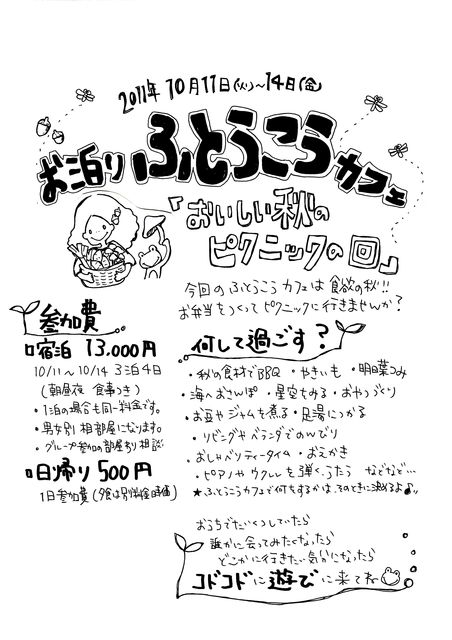 2011年 10月11日(火)～14日(金)
お泊り ふとうこう カフェ
「おいしい秋の
ピクニックの回」
今回の ふとうこう カフェは 食欲の秋!!
お弁当をつくって ピクニックに行きませんか?
参加費
宿泊 13,000円
10/11～10/14 3泊4日
(朝昼夜 食事つき)
・1泊の場合も同一料金です。
・男女別 相部屋になります。
・グループ参加の部屋割り相談
日帰り 500円
1日参加費 (夕食は別料金)
何して過ごす?
・秋の食材でBBQ ・やきいも ・明日葉つみ
・海へおさんぽ ・星空をみる ・おやつづくり
・お豆やジャムを煮る ・足湯につかる
・リビングやベランダでのんびり
・おしゃべりティータイム ・おえかき
・ピアノやウクレレを弾く、うたう などなど…
★ふとうこうカフェで何をするかは、そのときに決めるよ♪
おうちでたいくつしていたら
誰かに会ってみたくなったら
どこかに行きたい気分になったら
コドコドに遊びに来てね